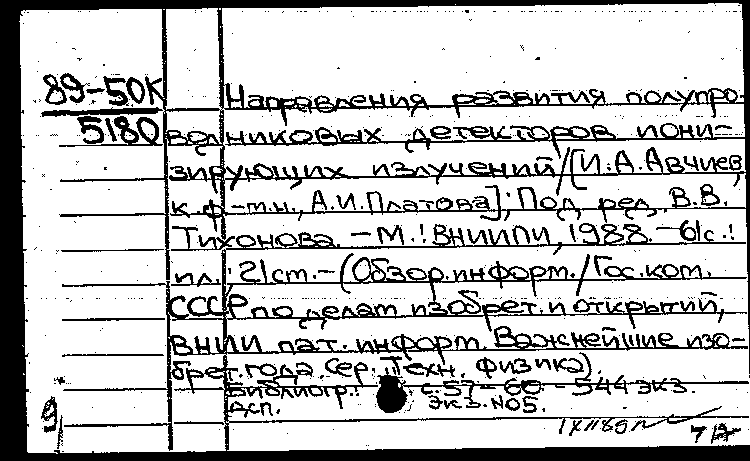 89-50К
5180
Направления развития полупро-
водниковых детекторов иони-
зирующих излучений/[И.А.Авчиев,
к.ф-м.н., А.И.Платова]; Под ред. В.В.
Тихонова. - М.: ВНИИПИ, 1988. - 61с.:
ил.; 21см. - (Обзор.информ./Гос.ком.
СССР по делам изобрет. и открытий,
ВНИИ пат. информ. Важнейшие изо-
брет. года. Сер.: Техн. физика).
Библиогр.: с.57-60 - 544 экз.
ДСП. Экз.N05.